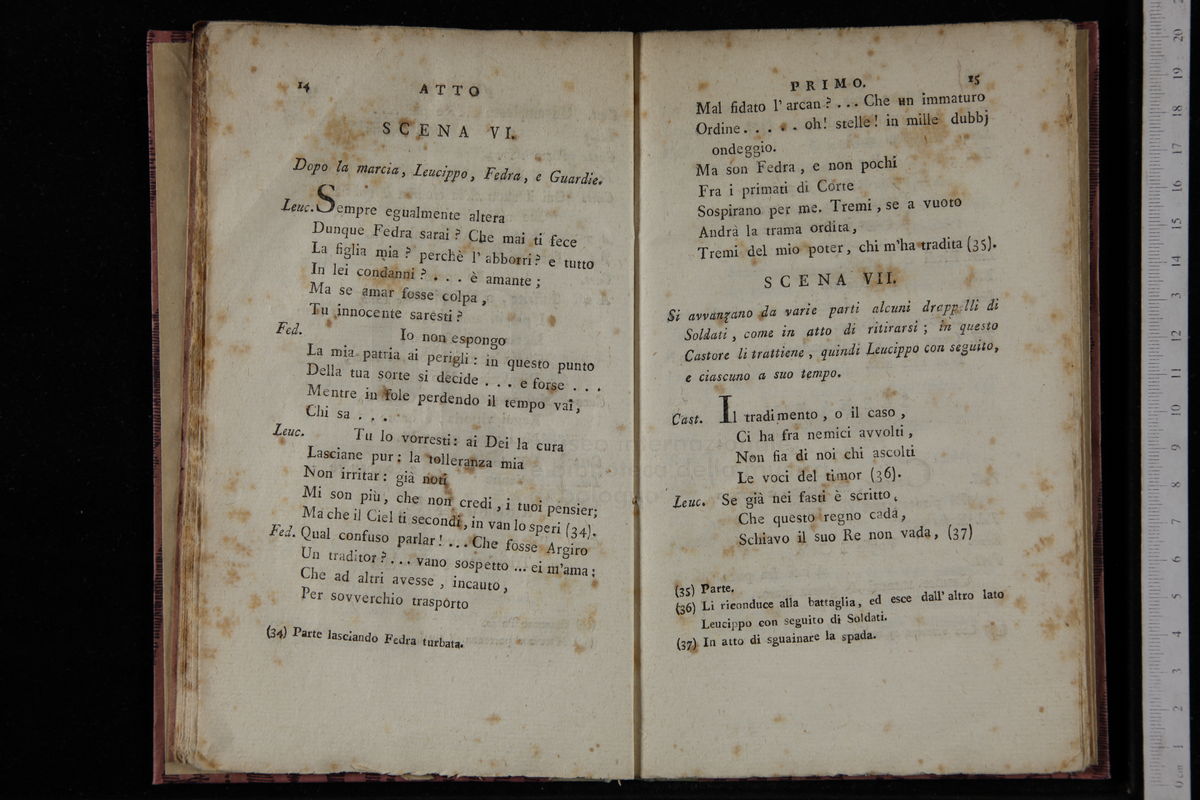 14 ATTO
SCENA VI.
Dopo la marcia, Leucippo, Fedra, e Guardie.
Leuc. Sempre egualmente altera
Dunque Fedra sarai? Che mai ti fece
La figlia mia? perchè l'abborri? e tutto
In lei condanni? . . . è amante;
Ma se amar fosse colpa,
Tu innocente saresti?
Fed. Io non espongo
La mia patria ai perigli: in questo punto
Della tua sorte si decide . . . e forse . . .
Mentre in fole perdendo il tempo vai,
Chi sa . . .
Leuc. Tu lo vorresti: ai Dei la cura
Lasciane pur; la tolleranza mia
Non irritar: già noti
Mi son più, che non credi, i tuoi pensier;
Ma che il Ciel ti secondi, in van lo speri (34).
Fed. Qual confuso parlar! ... Che fosse Argiro
Un traditor? ... vano sospetto ... ei m'ama;
Che ad altri avesse, incauto,
Per sovverchio trasporto
(34) Parte lasciando Fedra turbata.
PRIMO. 15
Mal fidato l'arcan? ... Che un immaturo
Ordine. . . . . oh! stelle! in mille dubbj
ondeggio.
Ma son Fedra, e non pochi
Fra i primati di Corte
Sospirano per me. Tremi, se a vuoto
Andrà la trama ordita,
Tremi del mio poter, chi m'ha tradita (35).
SCENA VII.
Si avvanzano da varie parti alcuni drappelli di
Soldati, come in atto di ritirarsi; in questo
Castore li trattiene, quindi Leucippo con seguito,
e ciascuno a suo tempo.
Cast. Il tradimento, o il caso,
Ci ha fra nemici avvolti,
Non fia di noi chi ascolti
Le voci del timor (36).
Leuc. Se già nei fasti è scritto,
Che questo regno cada,
Schiavo il suo Re non vada, (37)
(35) Parte.
(36) Li riconduce alla battaglia, ed esce dall'altro lato
Leucippo con seguito di Soldati.
(37) In atto di sguainare la spada.